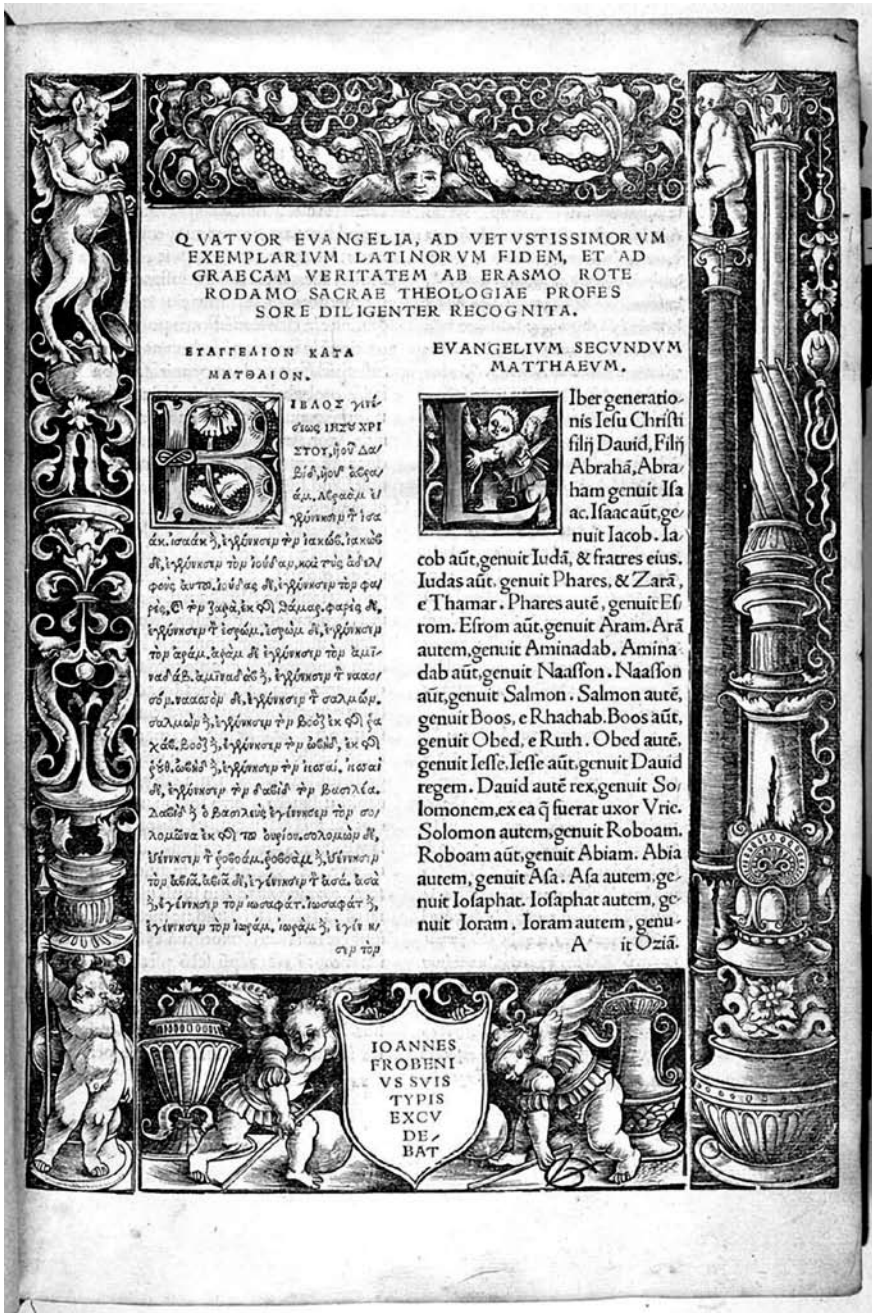 QVATVOR EVANGELIA, AD VETVSTISSIMORVM
EXEMPLARIVM LATINORVM FIDEM, ET AD
GRAECAM VERITATEM AB ERASMO ROTE
RODAMO SACRAE THEOLOGIAE PROFES
SORE DILIGENTER RECOGNITA.
ΕΥΑΓΓΕΛΙΟΝ ΚΑΤΑ
ΜΑΤΘΑΙΟΝ.
ΒΙΒΛΟΣ γενέ-
σεως ΙΗΣΟΥ ΧΡΙ
ΣΤΟΥ, ὑοῦ Δα/
βίδ, ὑοῦ ἀβρα/
άμ. Ἀβραὰμ ἐ/
γέννησεν τὸν ἰσα
άκ. ἰσαὰκ δὲ, ἐγέννησεν τὸν ἰακώβ. ἰακὼβ
δὲ, ἐγέννησεν τὸν ἰούδαν, καὶ τοὺς ἀδελ/
φοὺς αὐτοῦ. ἰούδας δὲ, ἐγέννησεν τὸν φα/
ρὲς, καὶ τὸν ζαρὰ, ἐκ τῆς θάμαρ. φαρὲς δὲ,
ἐγέννησεν τὸν ἐσρώμ. ἐσρὼμ δὲ, ἐγέννησεν
τὸν ἀράμ. ἀρὰμ δὲ ἐγέννησεν τὸν ἀμι-
ναδάβ. ἀμιναδὰβ δὲ, ἐγέννησεν τὸν ναασ/
σόν. ναασὸν δὲ, ἐγέννησεν τὸν σαλμών.
σαλμὼν δὲ, ἐγέννησεν τὸν βοὸζ ἐκ τῆς ῥα
χάβ. βοὸζ δὲ, ἐγέννησεν τὸν ὠβὴδ, ἐκ τῆς
ῥούθ. ὠβὴδ δὲ, ἐγέννησεν τὸν ιεσσαί. ιεσσαὶ
δὲ, ἐγέννησεν τὸν δαβὶδ τὸν βασιλέα.
Δαβὶδ δὲ ὁ βασιλεὺς ἐγέννησεν τὸν σο/
λομῶνα ἐκ τῆς τοῦ οὐρίου. σολομὼν δὲ,
ἐγέννησεν τὸν ῥοβοάμ. ῥοβοὰμ δὲ, ἐγέννησεν
τὸν ἀβιά. ἀβιὰ δὲ, ἐγέννησεν τὸν ἀσά. ἀσὰ
δὲ, ἐγέννησεν τὸν ἰωσαφάτ. ἰωσαφὰτ δὲ,
ἐγέννησεν τὸν ἰωράμ. ἰωρὰμ δὲ, ἐγέννη/
σεν τὸν
EVANGELIVM SECVNDVM
MATTHAEVM.
LIber generatio-
nis Iesu Christi
filij Dauid, Filij
Abrahā, Abra/
ham genuit Isa
ac. Isaac aūt, ge/
nuit Iacob. Ia/
cob aūt, genuit Iudā, & fratres eius.
Iudas aūt, genuit Phares, & Zarā,
e Thamar. Phares autē, genuit Es/
rom. Esrom aūt, genuit Aram. Arā
autem, genuit Aminadab. Amina/
dab aūt, genuit Naasson. Naasson
aūt, genuit Salmon. Salmon autē,
genuit Boos, e Rhachab. Boos aūt,
genuit Obed, e Ruth. Obed autē,
genuit Iesse. Iesse aūt, genuit Dauid
regem. Dauid autē rex, genuit So/
lomonem, ex ea q̃ fuerat uxor Vrie.
Solomon autem, genuit Roboam.
Roboam aūt, genuit Abiam. Abia
autem, genuit Asa. Asa autem, ge-
nuit Iosaphat. Iosaphat autem, ge-
nuit Ioram. Ioram autem, genu-
A it Oziā.
IOANNES
FROBENI
VS SVIS
TYPIS
EXCV
DE/
BAT